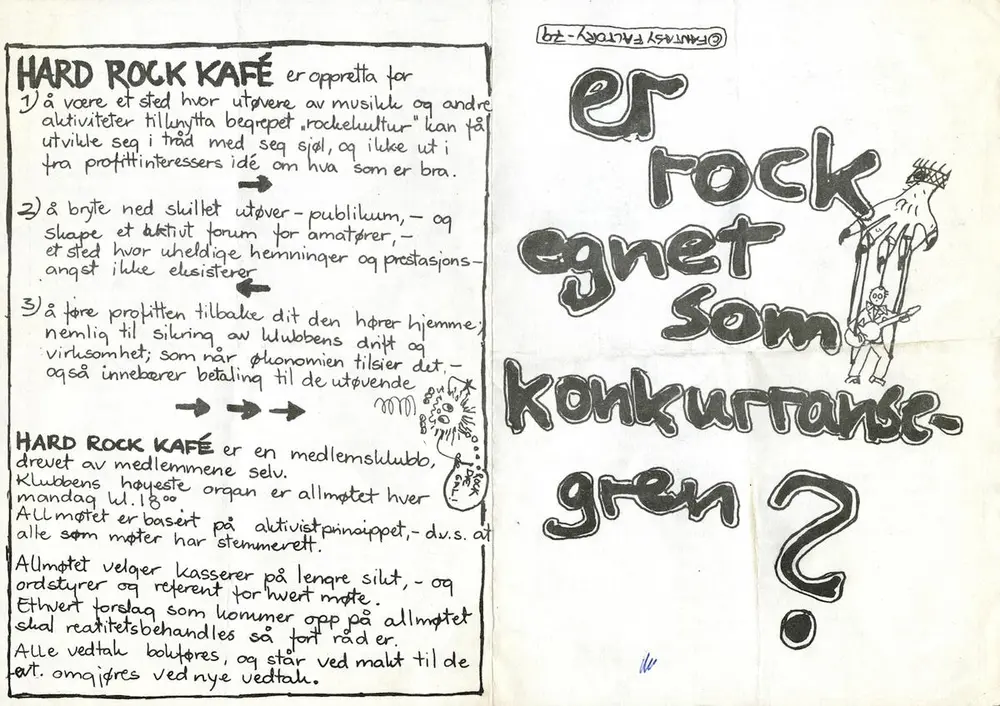 HARD ROCK KAFÉ er oppretta for
1) å være et sted hvor utøvere av musikk og andre
aktiviteter tilknytta begrepet „rockekultur" kan få
utvikle seg i tråd med seg sjøl, og ikke ut i
fra profittinteressers idé om hva som er bra.
2) å bryte ned skillet utøver – publikum, – og
skape et aktivt forum for amatører, –
et sted hvor uheldige hemninger og prestasjons–
angst ikke eksisterer
3) å føre profitten tilbake dit den hører hjemme;
nemlig til sikring av klubbens drift og
virksomhet; som når økonomien tilsier det, –
også innebærer betaling til de utøvende
ROCK
ME
GAL!
HARD ROCK KAFÉ er en medlemsklubb,
drevet av medlemmene selv.
Klubbens høyeste organ er allmøtet hver
mandag kl. 18⁰⁰
Allmøtet er basert på aktivistprinsippet, – d.v.s. at
alle som møter har stemmerett.
Allmøtet velger kasserer på lengre sikt, – og
ordstyrer og referent for hvert møte.
Ethvert forslag som kommer opp på allmøtet
skal realitetsbehandles så fort råd er.
Alle vedtak bokføres, og står ved makt til de
evt. omgjøres ved nye vedtak.
© FANTASY FACTORY - 79
er
rock
egnet
som
konkurranse-
gren
?